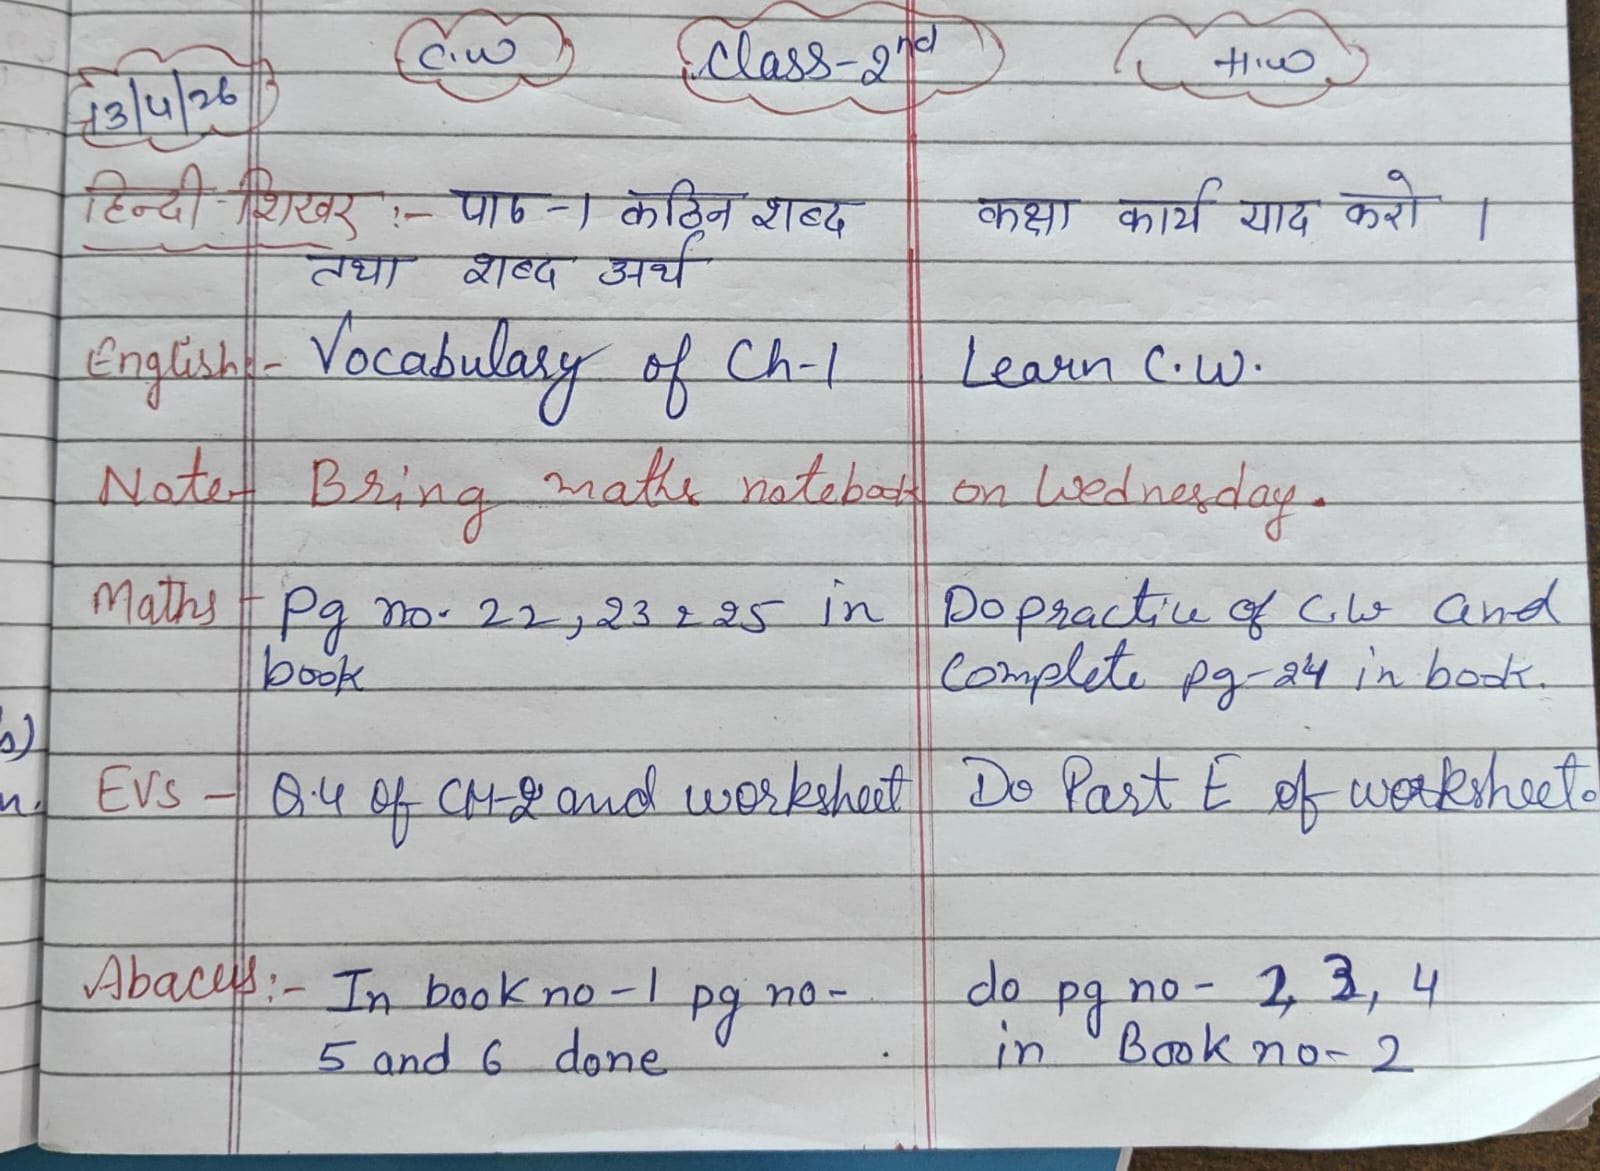 C.W Class-2nd H.W
13/4/26
हिन्दी शिखर :- पाठ-1 कठिन शब्द कक्षा कार्य याद करो ।
तथा शब्द अर्थ
English:- Vocabulary of Ch-1 Learn C.W.
Note- Bring maths notebook on Wednesday.
Maths - Pg no. 22, 23 & 25 in Do practice of C.W and
book Complete pg-24 in book.
EVS - Q.4 of CH-2 and worksheet Do Part E of worksheet.
Abacus:- In book no-1 pg no- do pg no- 2, 3, 4
5 and 6 done in Book no-2